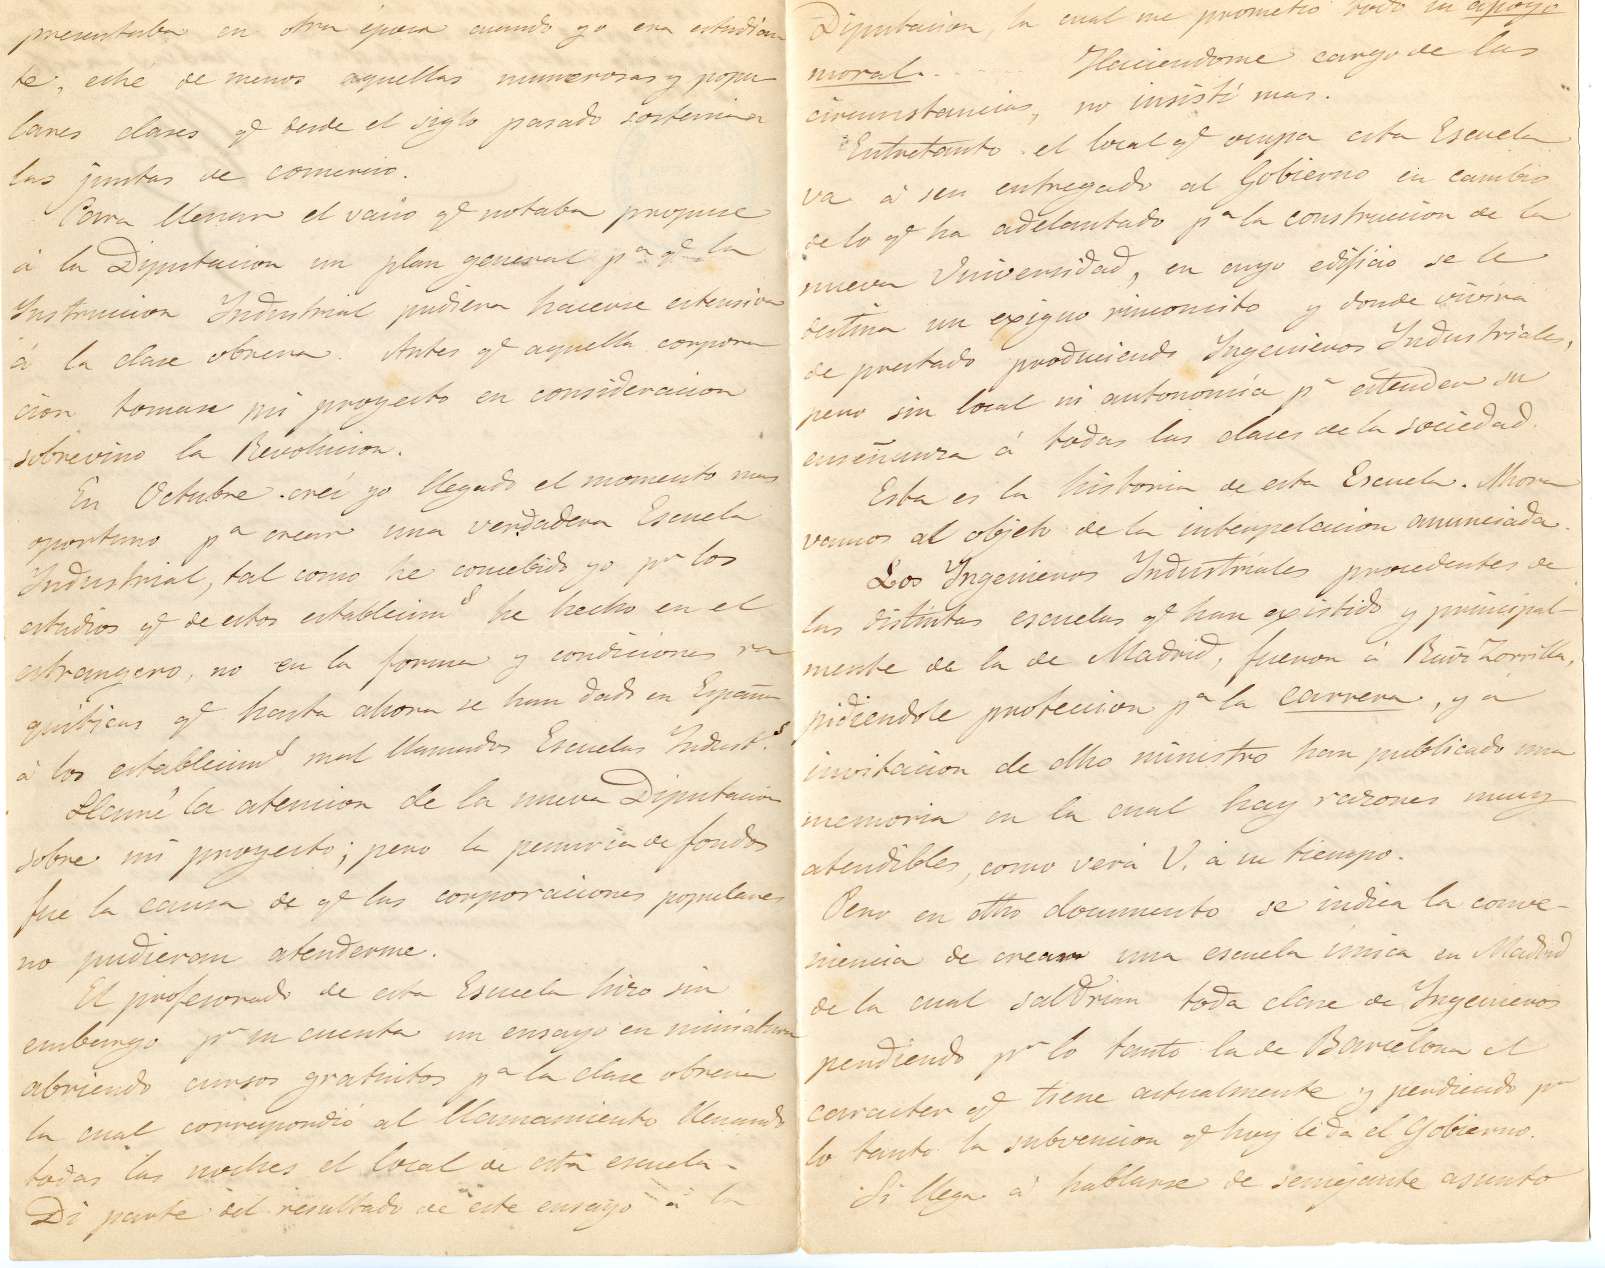 presentaba en otra época cuando yo era estudian
te, eché de menos aquellas numerosas y popu
lares clases qe desde el siglo pasado sostenian
las juntas de comercio.
Para llenar el vacio qe notaba propuse
á la Diputacion un plan general pa qe la
Instruccion Industrial pudiera hacerse estensiva
á la clase obrera. Antes qe aquella corpora
cion tomase mi proyecto en consideracion
sobrevino la Revolucion.
En Octubre creí yo llegado el momento mas
oportuno pa crear una verdadera Escuela
Industrial, tal como he concebido yo pr los
estudios qe de estos establecims he hecho en el
estrangero, no en la forma y condiciones ra
quiticas qe hasta ahora se han dado en España
á los establecims mal llamados Escuelas Industs.
Llamé la atencion de la nueva Diputacion
sobre mi proyecto; pero la penuria de fondos
fue la causa de qe las corporaciones populares
no pudieran atenderme.
El profesorado de esta Escuela hizo sin
embargo pr su cuenta un ensayo en miniatura
abriendo cursos gratuitos pa la clase obrera
la cual correspondió al llamamiento llenando
todas las noches el local de esta escuela.
Di parte del resultado de este ensayo á la
Diputacion, la cual me prometió todo su apoyo
moral. Haciendome cargo de las
circunstancias, no insistí mas.
Entretanto el local qe ocupa esta Escuela
va á ser entregado al Gobierno en cambio
de lo qe ha adelantado pa la construccion de la
nueva Universidad, en cuyo edificio se le
destina un exiguo rinconcito y donde vivirá
de prestado produciendo Ingenieros Industriales,
pero sin local ni autonomía pa estender su
enseñanza á todas las clases de la sociedad.
Esta es la historia de esta Escuela. Ahora
vamos al objeto de la interpelacion anunciada.
Los Ingenieros Industriales procedentes de
las distintas escuelas qe han existido y principal-
mente de la de Madrid, fueron á Ruiz Zorrilla,
pidiendole proteccion pa la carrera, y á
invitacion de dho ministro han publicado una
memoria en la cual hay razones muy
atendibles, como verá V. á su tiempo.
Pero en otro documento se indica la conve-
niencia de crear una escuela única en Madrid
de la cual saldrian toda clase de Ingenieros
perdiendo pr lo tanto la de Barcelona el
caracter qe tiene actualmente y perdiendo pr
lo tanto la subvencion qe hoy le da el Gobierno.
Si llega á hablarse de semejante asunto